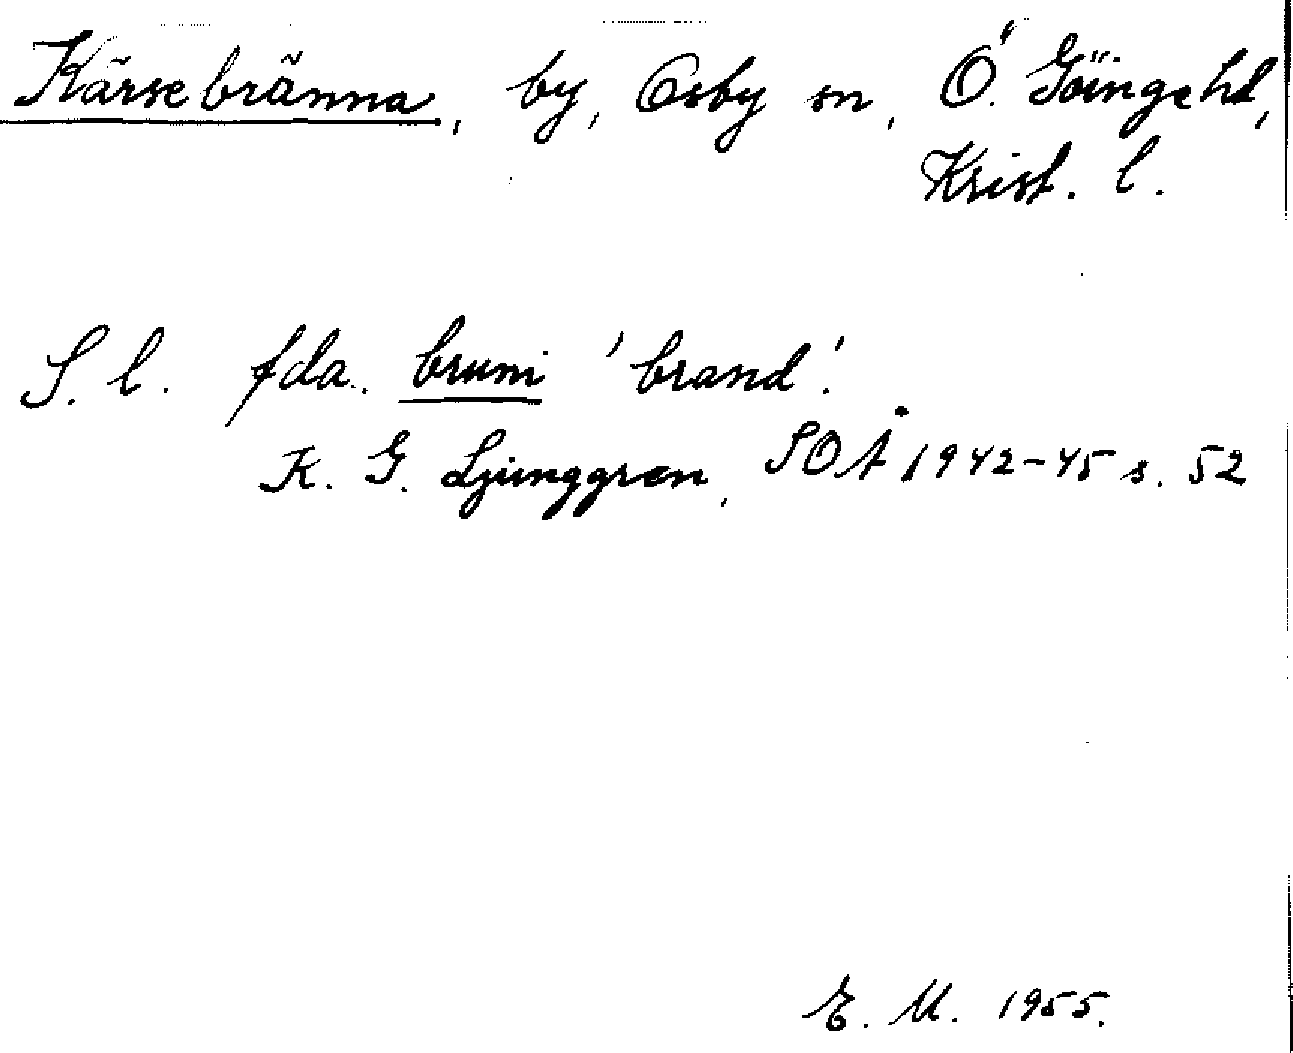 Kärsebränna, by, Osby sn, Ö. Göinge hd,
Krist. l.
S. l. fda. bruni 'brand'.
K. G. Ljunggren, SOÅ 1942-45 s. 52
E. M. 1955.